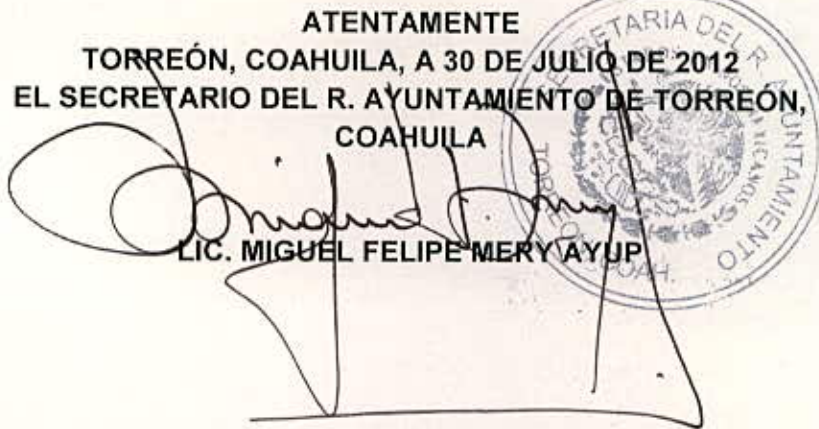 ATENTAMENTE
TORREÓN, COAHUILA, A 30 DE JULIO DE 2012
EL SECRETARIO DEL R. AYUNTAMIENTO DE TORREÓN,
COAHUILA
LIC. MIGUEL FELIPE MERY AYUP
SECRETARIA DEL R. AYUNTAMIENTO
TORREON, COAH.